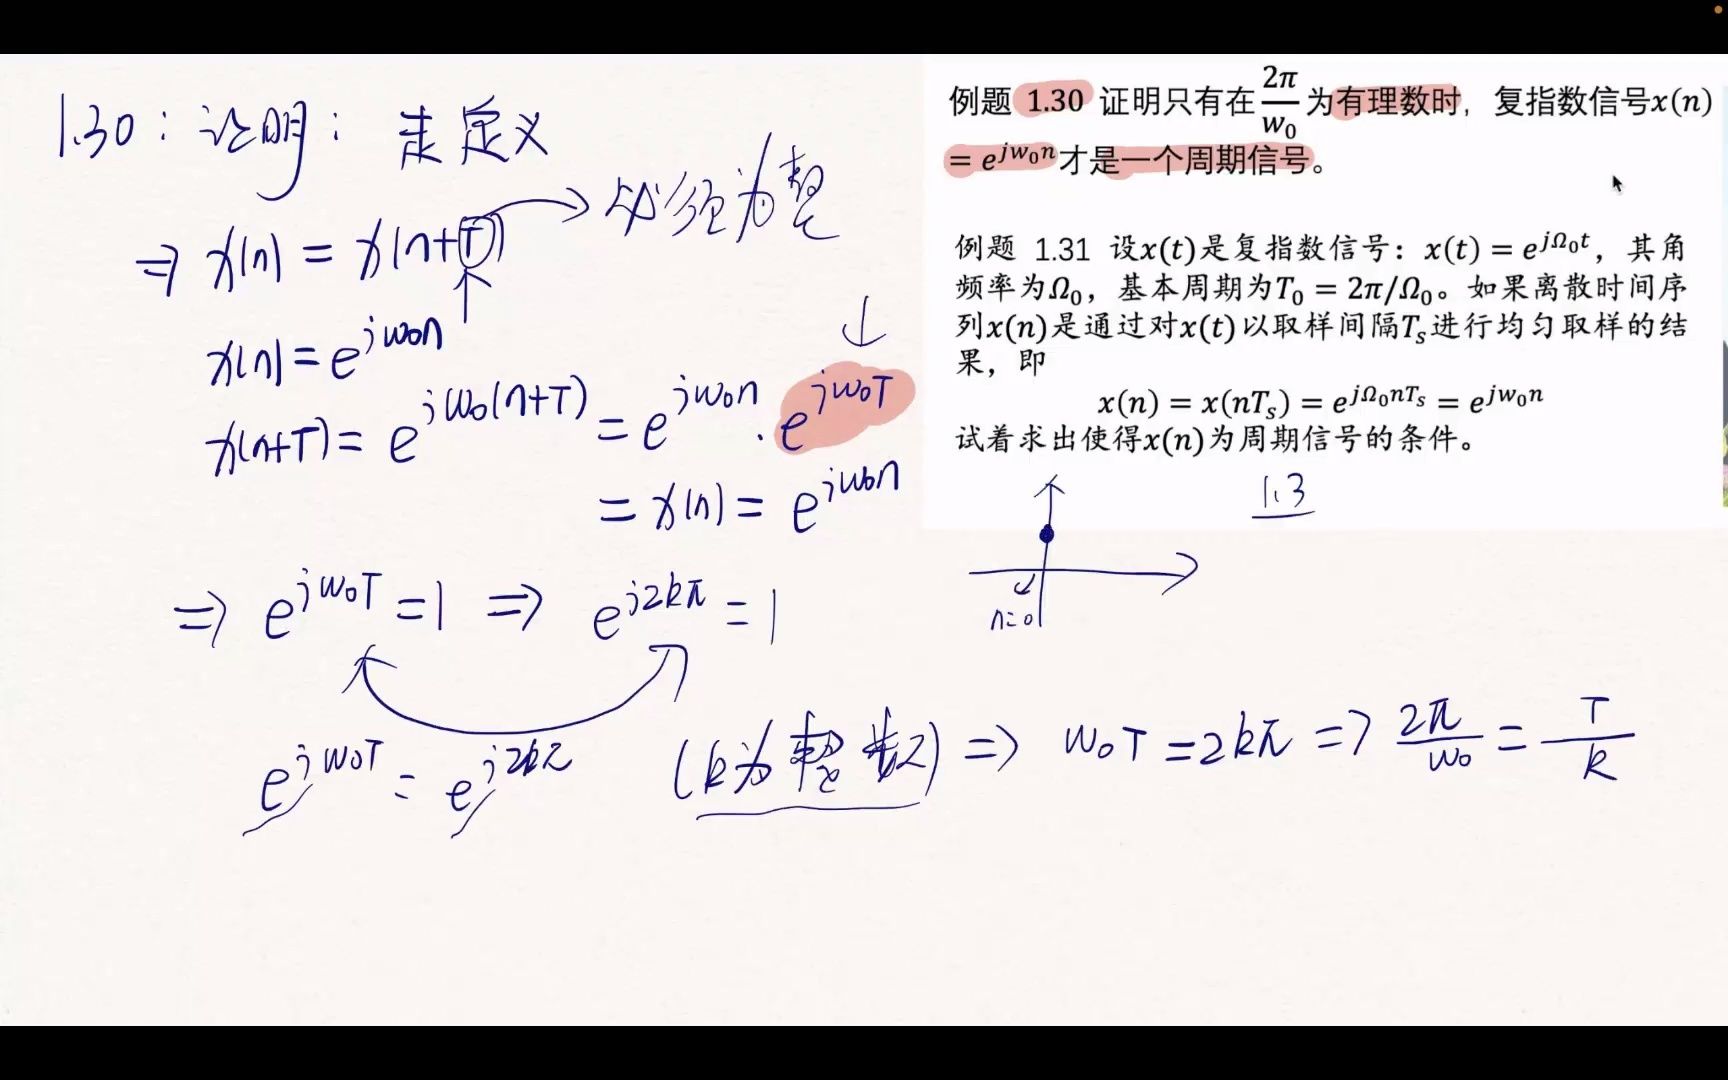 1.30：证明：走定义
⇒ x(n) = x(n+T) → 必须为整
x(n) = e^{jw₀n}
x(n+T) = e^{jw₀(n+T)} = e^{jw₀n} · e^{jw₀T}
= x(n) = e^{jw₀n}
⇒ e^{jw₀T} = 1 ⇒ e^{j2kπ} = 1
e^{jw₀T} = e^{j2kπ} (k为整数) ⇒ w₀T = 2kπ ⇒ 2π/w₀ = T/k
例题 1.30 证明只有在 2π/w₀ 为有理数时，复指数信号x(n)
= e^{jw₀n}才是一个周期信号。
例题 1.31 设x(t)是复指数信号：x(t) = e^{jΩ₀t}，其角
频率为Ω₀，基本周期为T₀ = 2π/Ω₀。如果离散时间序
列x(n)是通过对x(t)以取样间隔Tₛ进行均匀取样的结
果，即
x(n) = x(nTₛ) = e^{jΩ₀nTₛ} = e^{jw₀n}
试着求出使得x(n)为周期信号的条件。
1.3
n=0